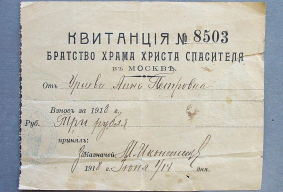 КВИТАНЦІЯ № 8503
БРАТСТВО ХРАМА ХРИСТА СПАСИТЕЛЯ
ВЪ МОСКВѢ.
Отъ Анны Петровны
Взносъ за 1918 г.
Руб. Три рубля
принялъ:
Казначей
1918 г. Іюня 1/14 дня.